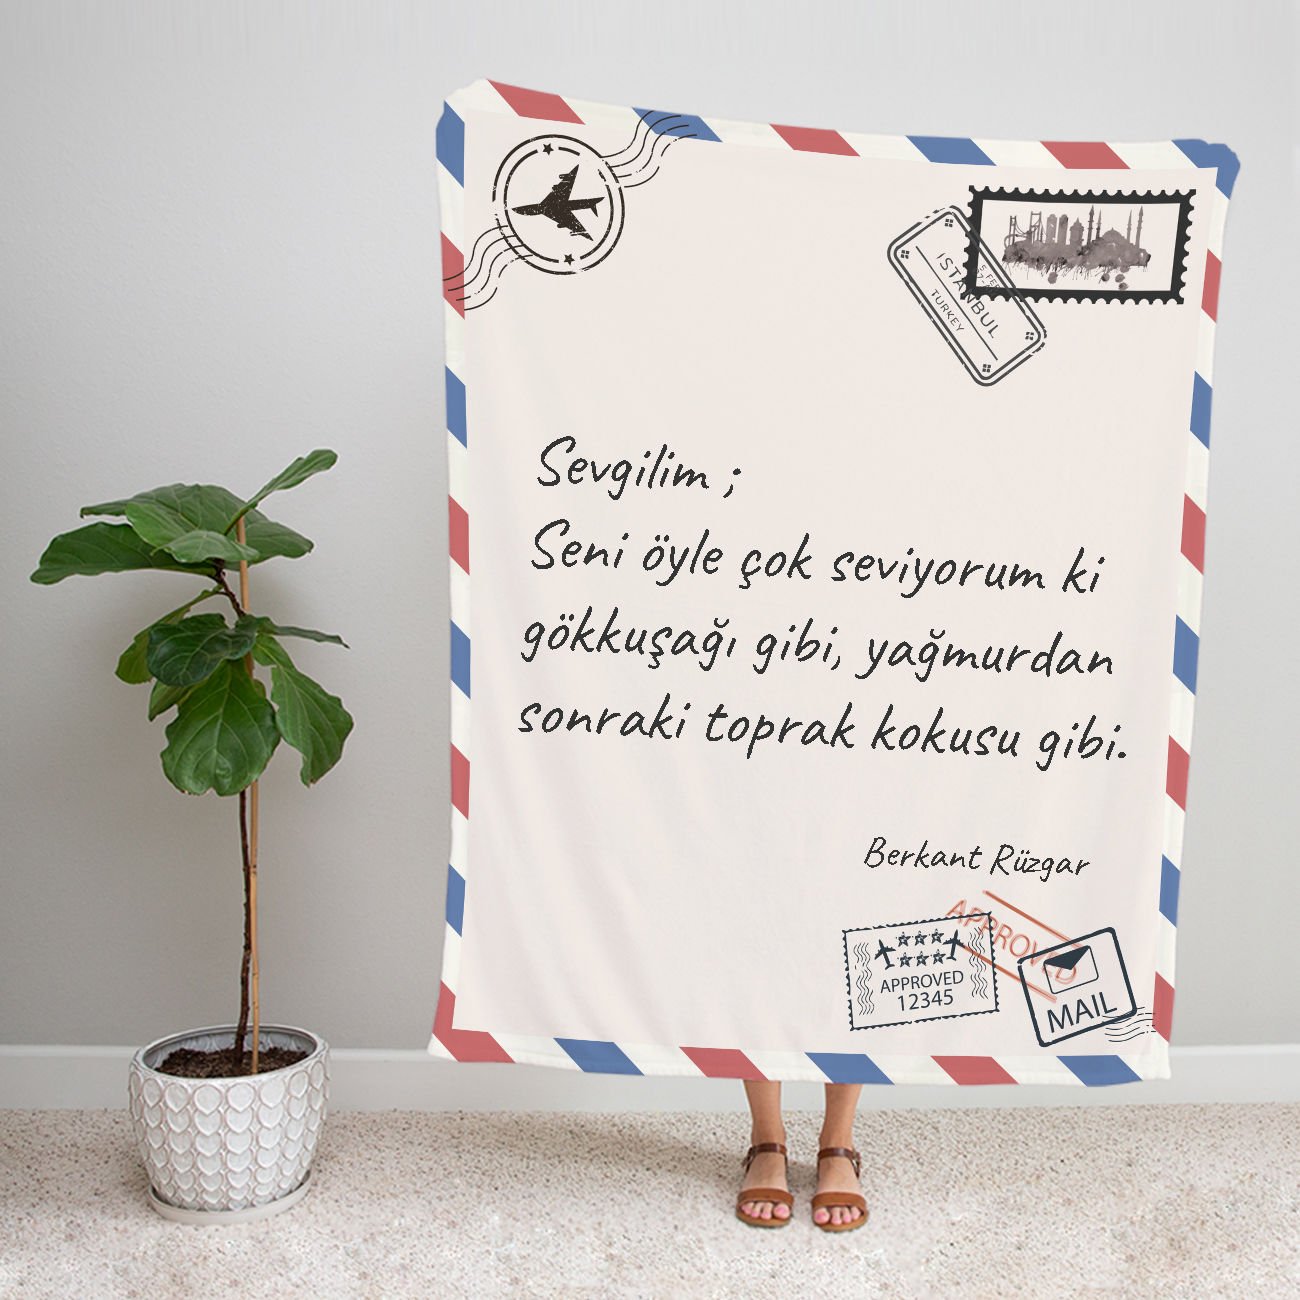 ISTANBUL
TURKEY
Sevgilim ;
Seni öyle çok seviyorum ki
gökkuşağı gibi, yağmurdan
sonraki toprak kokusu gibi.
Berkant Rüzgar
APPROVED
APPROVED
12345
MAIL